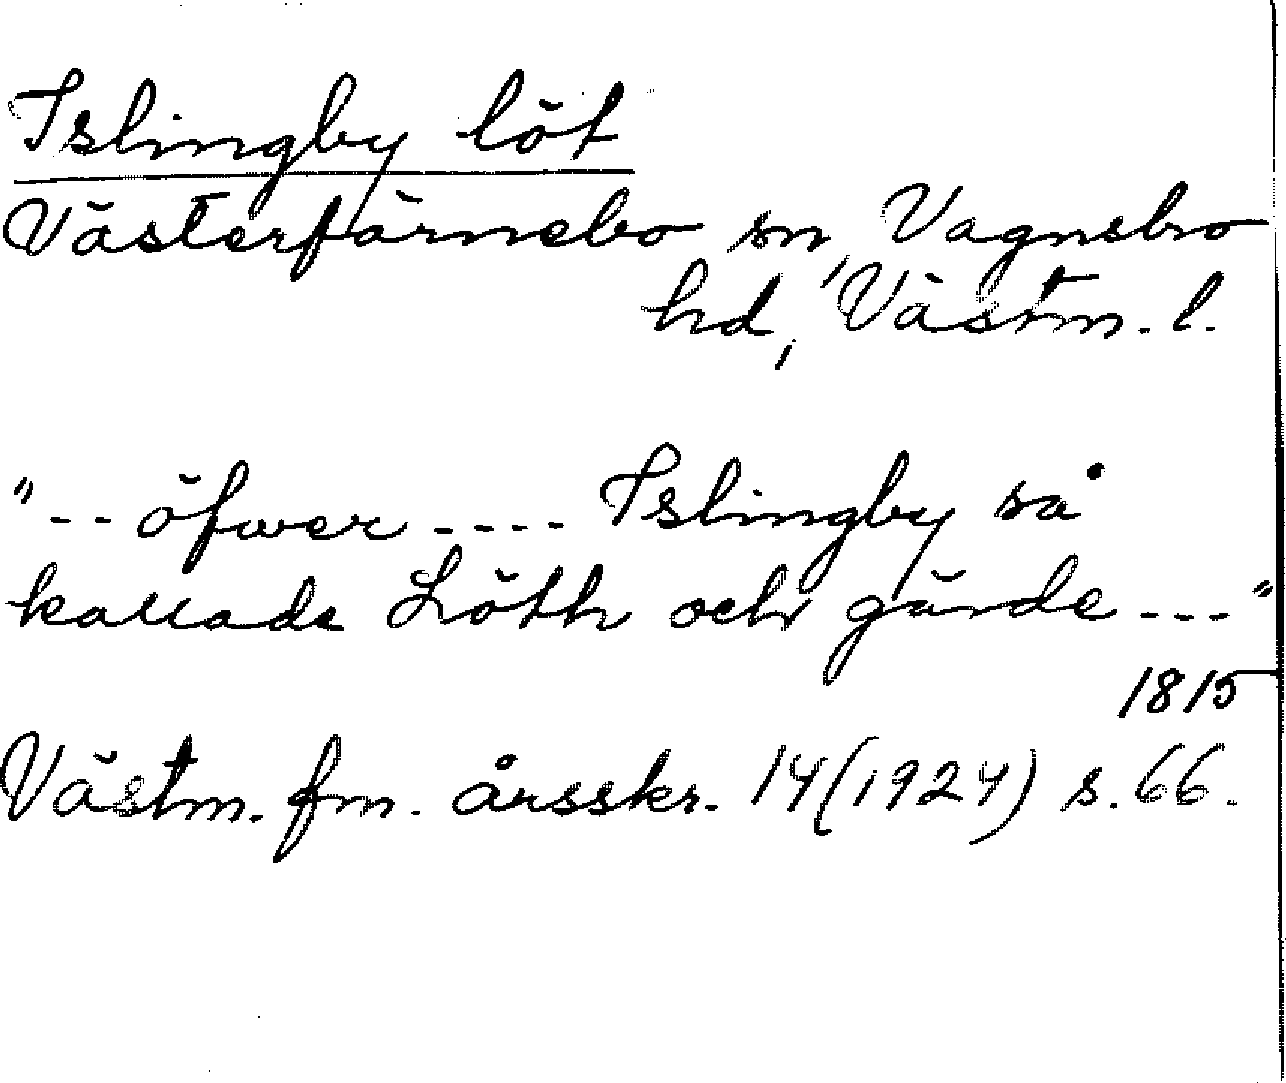 Islingby löt
Västerfärnebo sn, Vagnsbro
hd, Västm. l.
"-- öfwer ---- Islingby så
kallade Löth och gärde ---"
1815
Västm. fm. årsskr. 14(1924) s. 66.